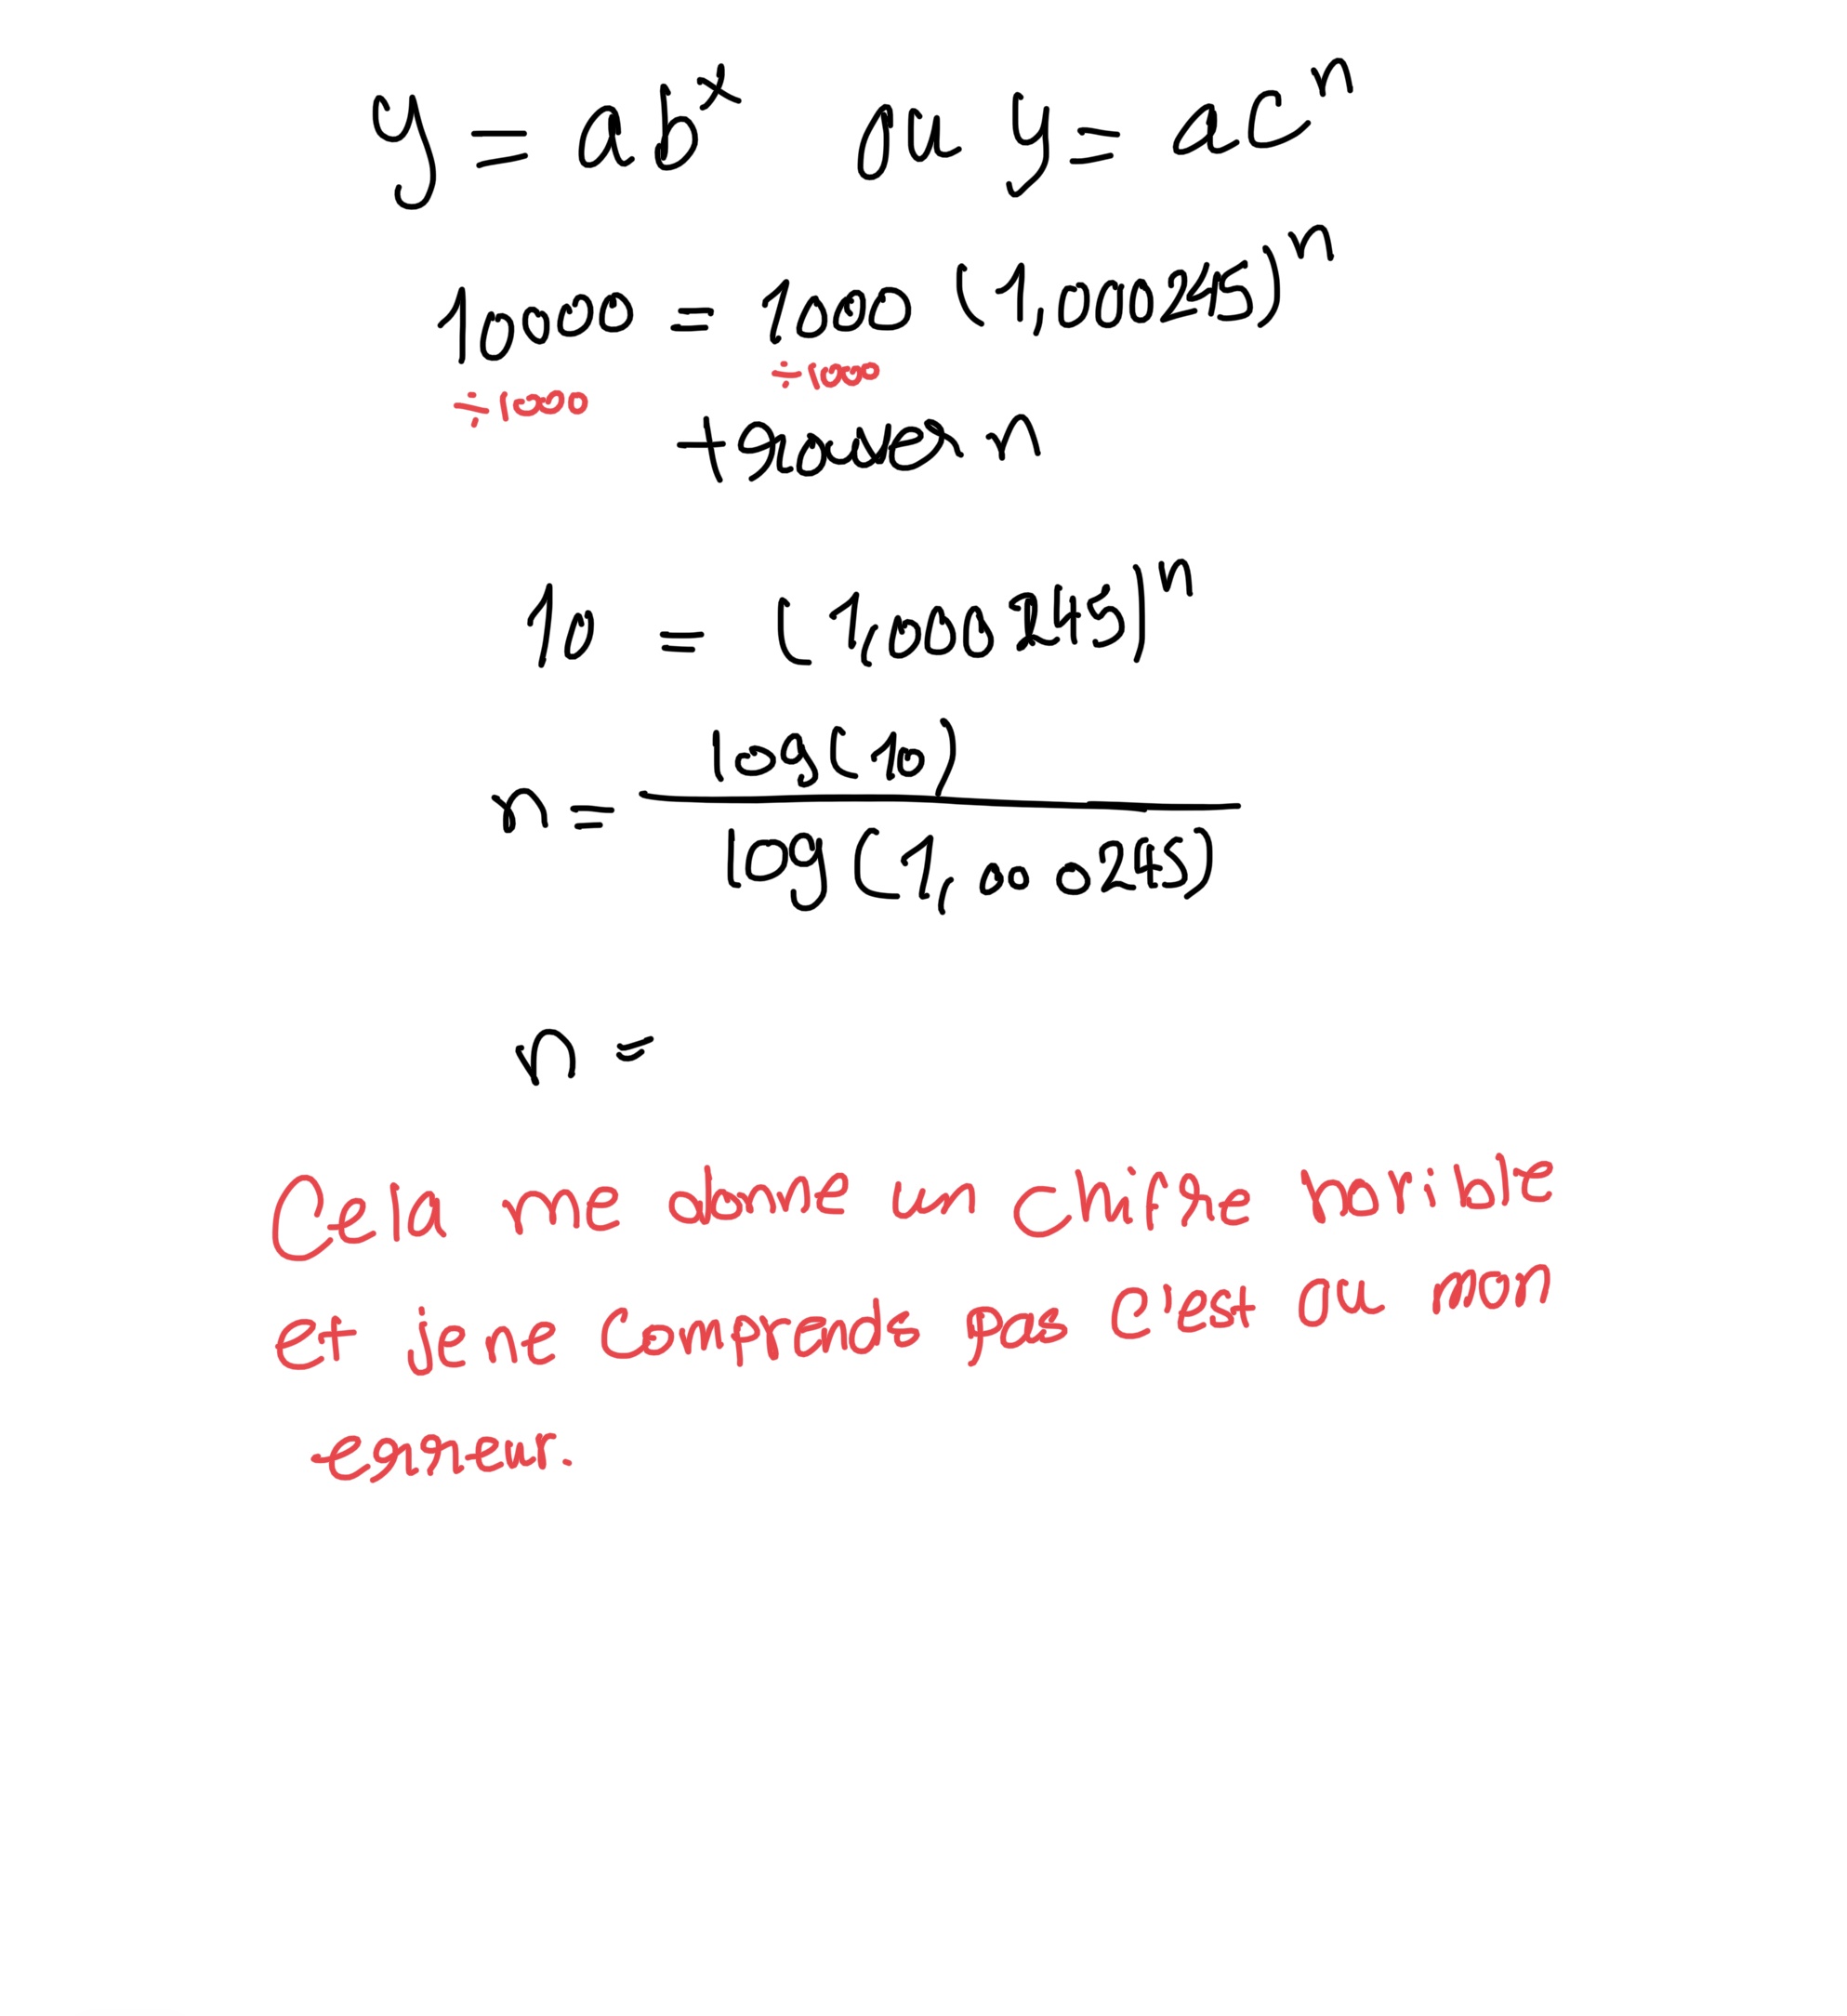 y = ab^x ou y = ac^n
10000 = 1000 (1,000245)^n
÷1000 ÷1000
trouver n
10 = (1,000245)^n
n = log(10) / log(1,000245)
n =
Cela me donne un chiffre horible
et je ne comprends pas c'est ou mon
erreur.